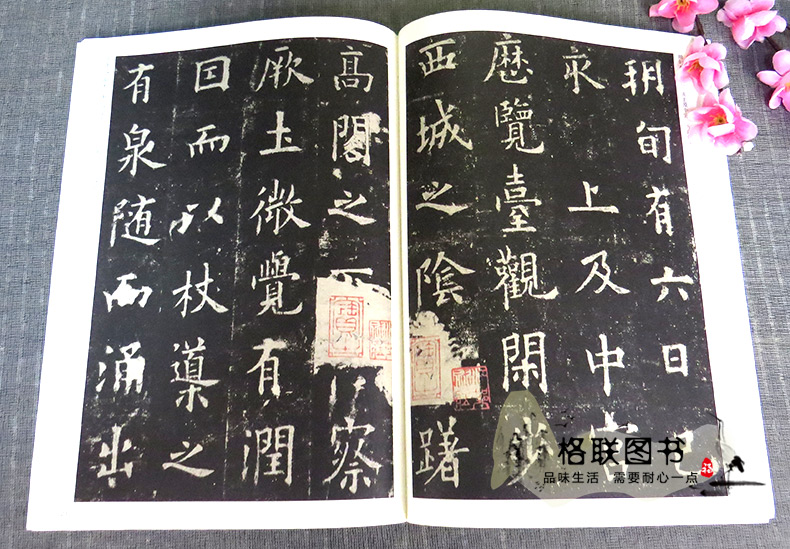 朔旬有六日己
亥上及中宫
歷覽臺觀閑步
西城之陰躇
髙閣之下察
厥土微覺有潤
因而以杖導之
有泉随而涌出
格联图书
品味生活 需要耐心一点